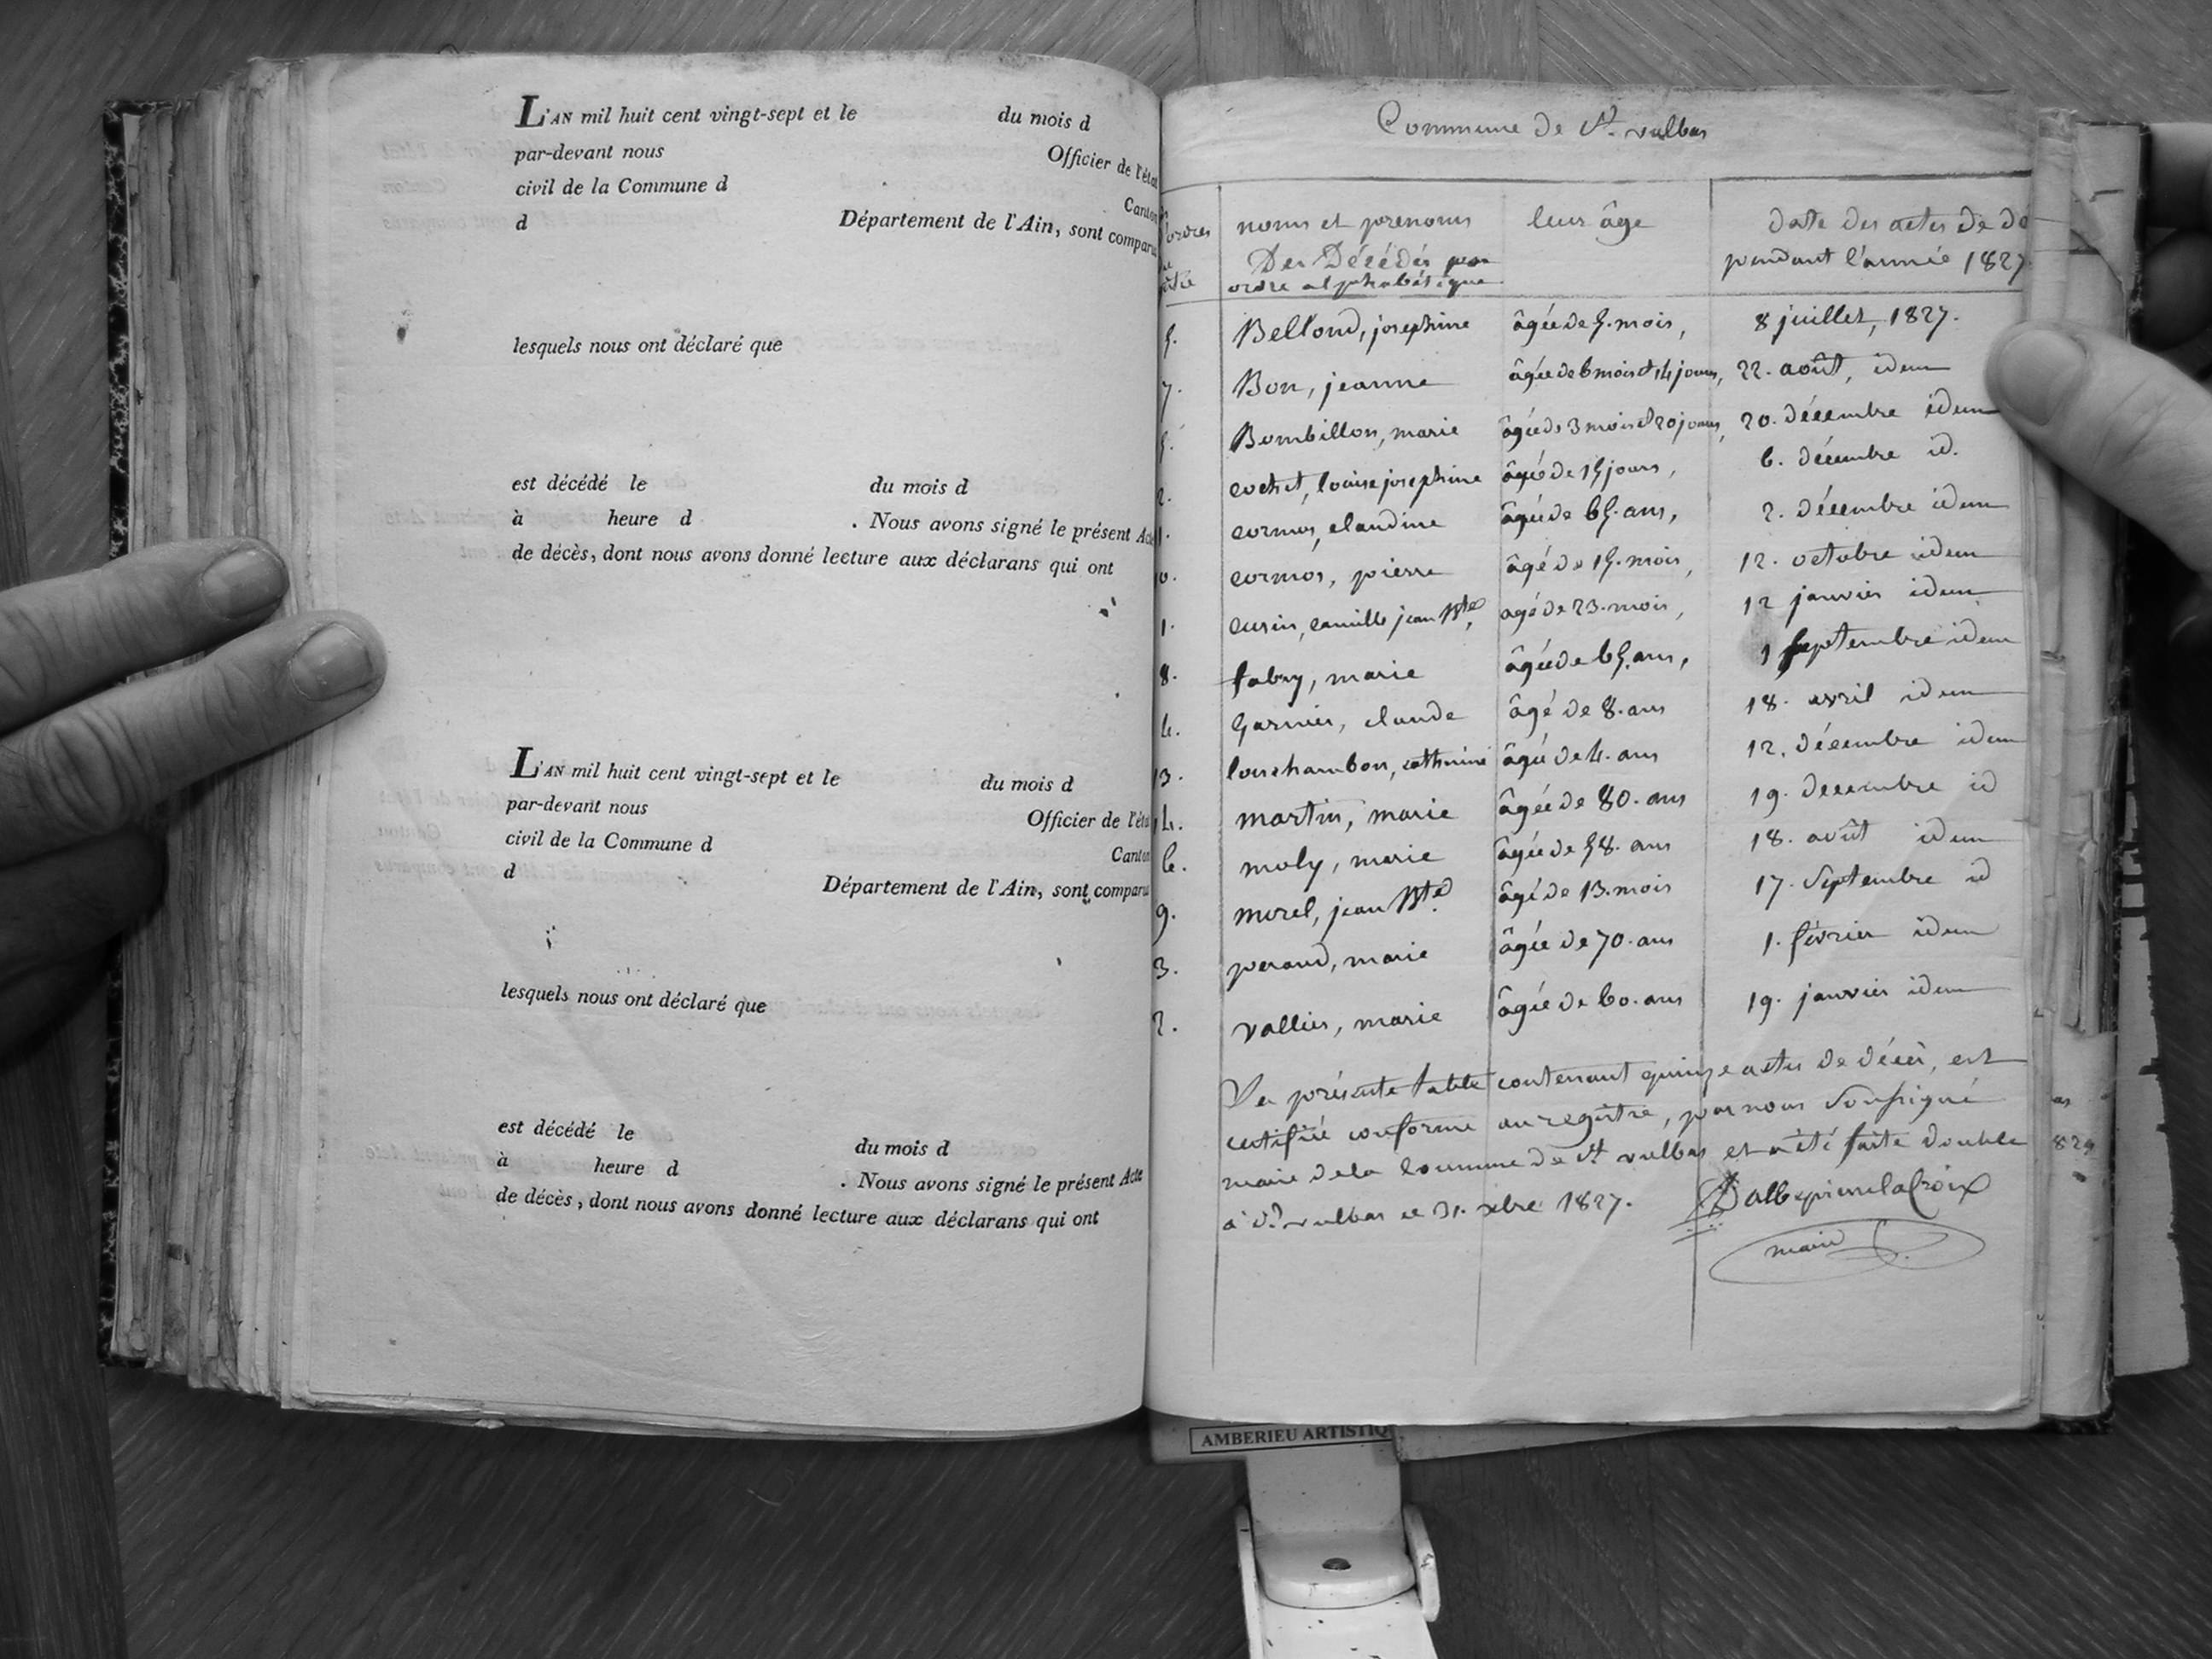 L'AN mil huit cent vingt-sept et le du mois d
par-devant nous Officier de l'état
civil de la Commune d Canton
d Département de l'Ain, sont comparus
lesquels nous ont déclaré que
est décédé le du mois d
à heure d . Nous avons signé le présent Acte
de décès, dont nous avons donné lecture aux déclarans qui ont
L'AN mil huit cent vingt-sept et le du mois d
par-devant nous Officier de l'éta
civil de la Commune d Canton
d Département de l'Ain, sont comparus
lesquels nous ont déclaré que
est décédé le du mois d
à heure d . Nous avons signé le présent Acte
de décès, dont nous avons donné lecture aux déclarans qui ont
Commune de St. vulbas
noms et prenoms leur âge date des actes de dé
Des Décédés par pendant l'année 1827
ordre alphabétique
5. Bellond, josephine âgée de 5. mois, 8 juillet, 1827.
7. Bon, jeanne âgée de 6 mois et 14 jours, 22. août, idem
5. Bombillon, marie âgée de 3 mois et 20 jours, 20. décembre idem
2. cochet, louise josephine âgée de 15 jours, 6. décembre id.
1. cormos, claudine âgée de 65. ans, 2. décembre idem
0. cormos, pierre âgé de 15. mois, 12. octobre idem
1. cusin, camille jean Bte, agé de 23. mois, 12 janvier idem
8. fabry, marie âgée de 65. ans, 1 septembre idem
4. Garnier, claude âgé de 8. ans 18. avril idem
13. Louchambon, catherine âgée de 4. ans 12. décembre idem
14. martin, marie âgée de 80. ans 19. decembre id
6. moly, marie âgée de 58. ans 18. août idem
9. morel, jean Bte. âgé de 13. mois 17. Septembre id
3. peraud, marie âgée de 70. ans 1. février idem
2. vallier, marie âgée de 60. ans 19. janvier idem
La présente table contenant quinze actes de décès, est
certifiée conforme au registre, par nous Soussigné
maire de la Commune de St vulbas et a été faite double
à St. vulbas ce 31. xbre 1827. DalbepierrelaCroix
maire
829
AMBERIEU ARTISTIQ